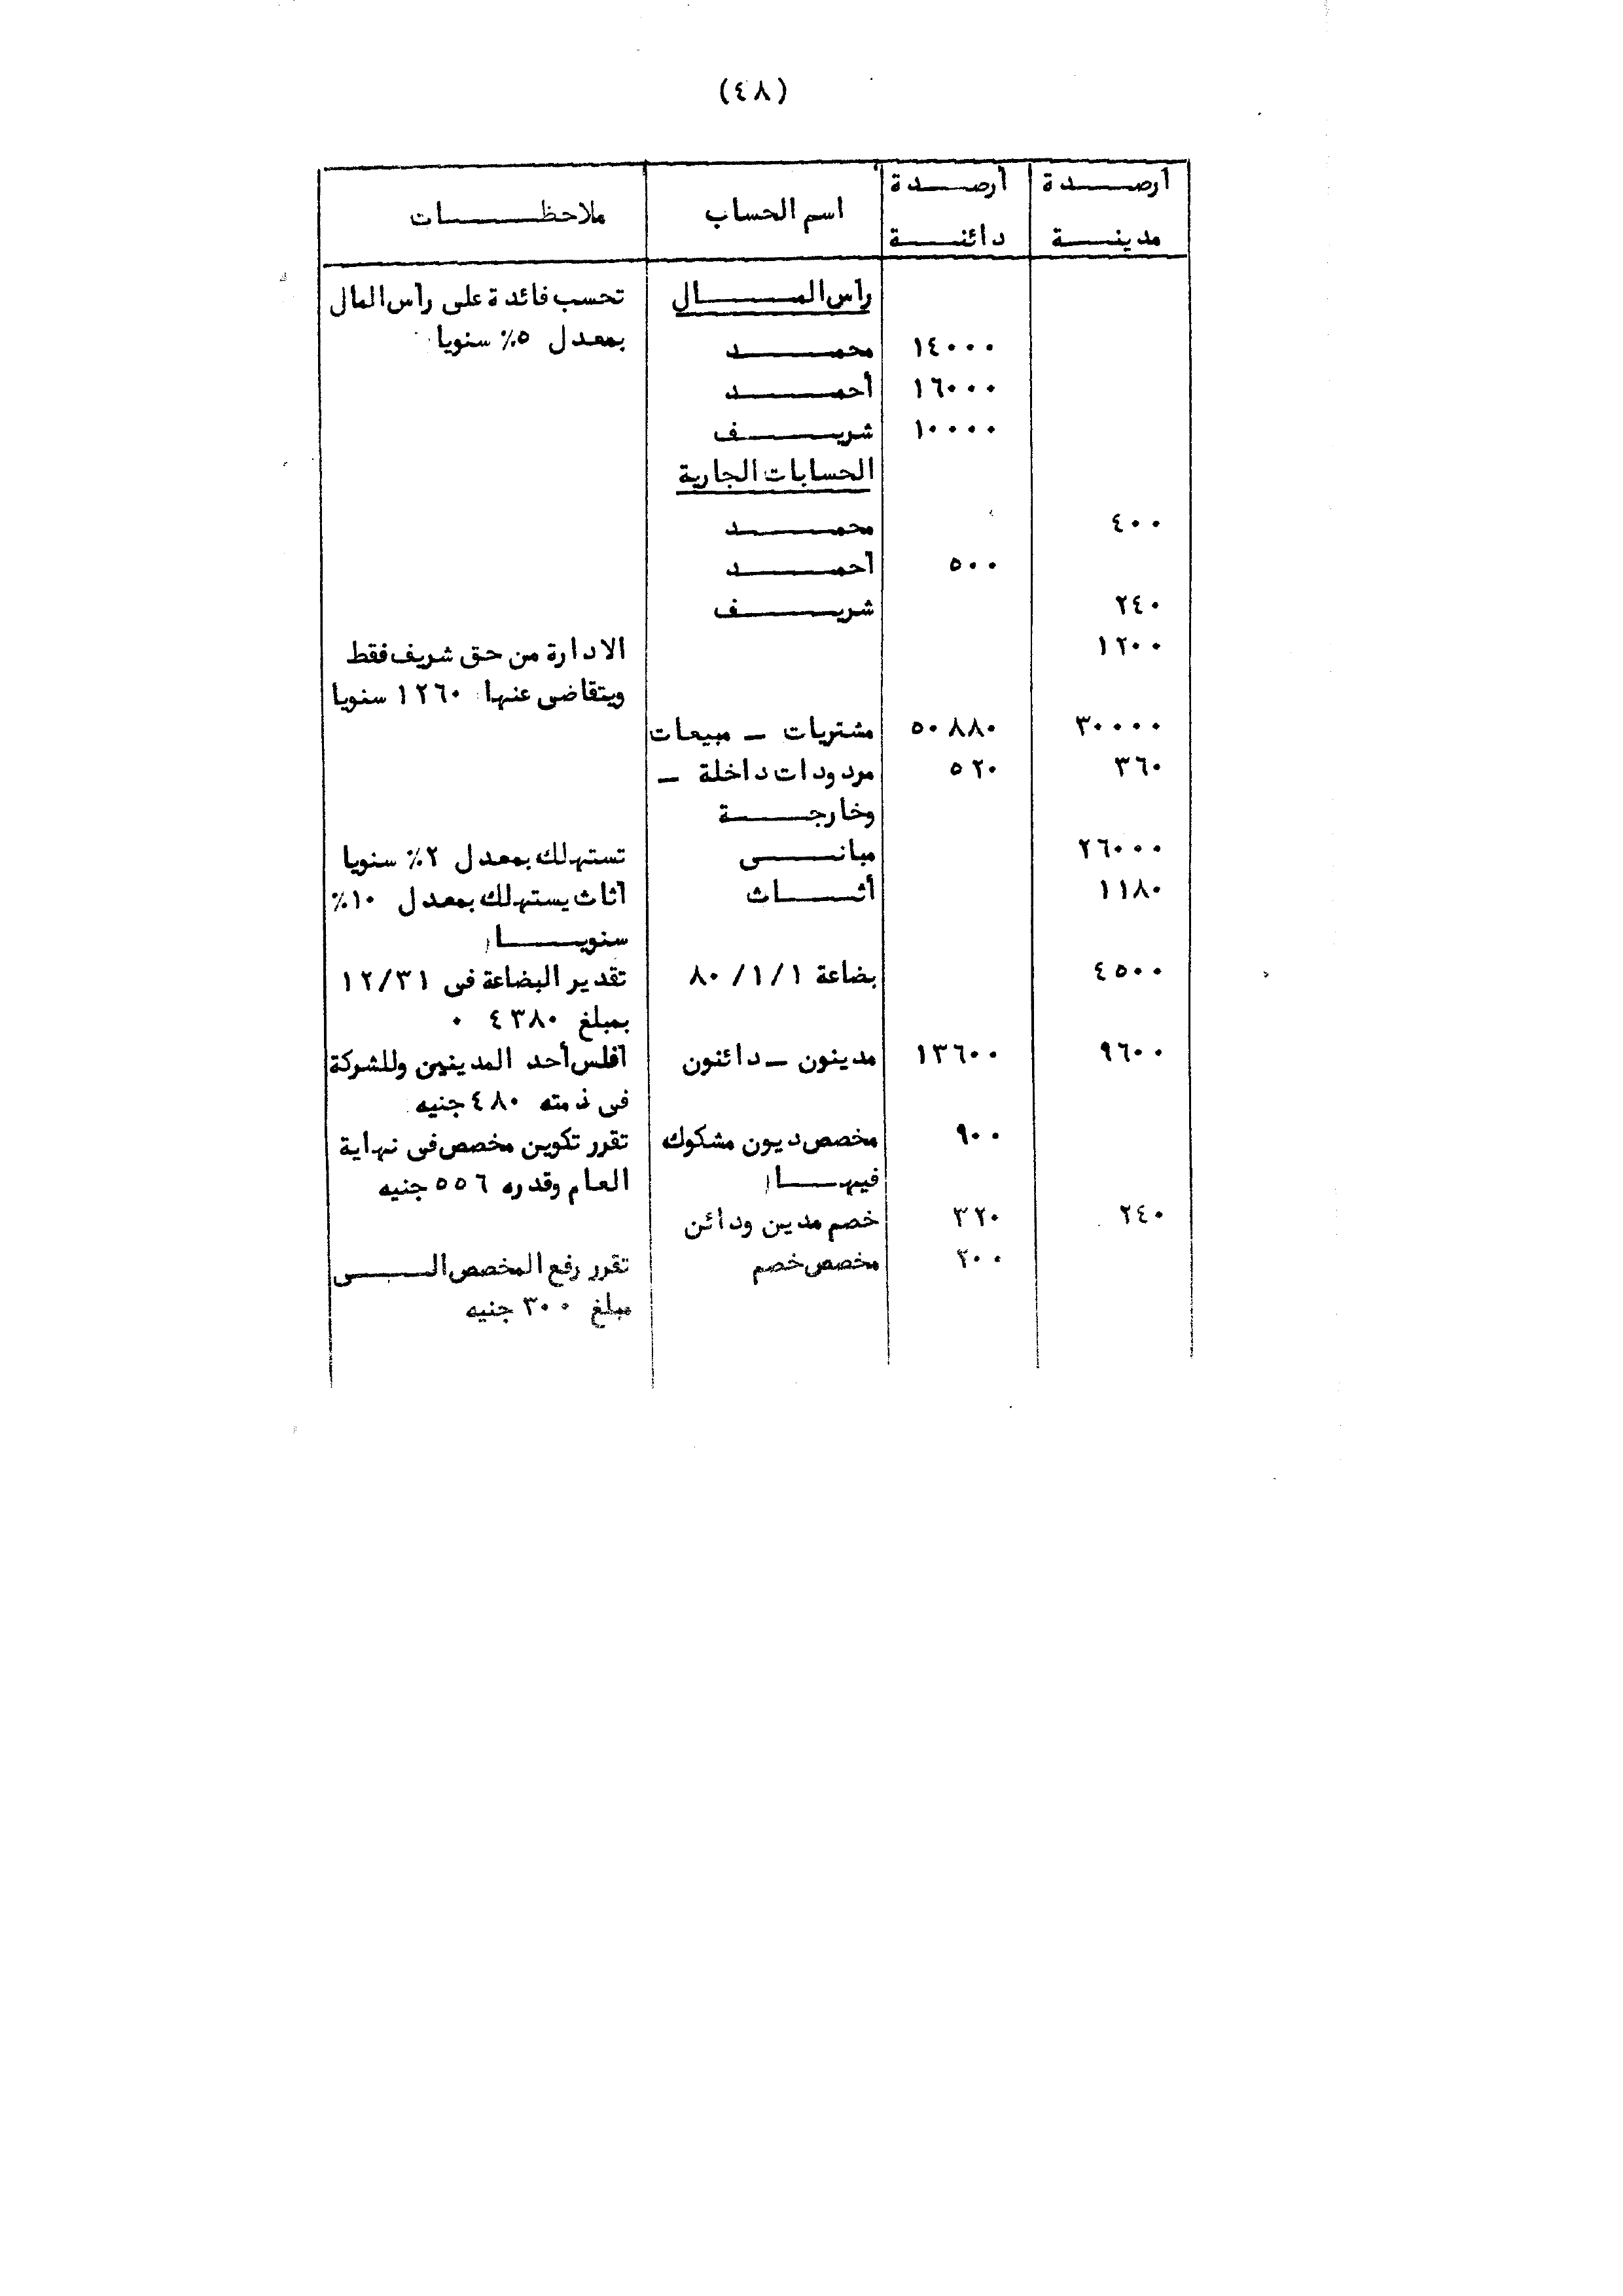 (٤٨)
أرصدة مدينة	أرصدة دائنة	اسم الحساب	ملاحظات
رأس المال	تحسب فائدة على رأس المال
١٤٠٠٠	محمد	بمعدل ٥٪ سنويا
١٦٠٠٠	أحمد
١٠٠٠٠	شريف
الحسابات الجارية
٤٠٠	محمد
٥٠٠	أحمد
٢٤٠	شريف
١٢٠٠	الادارة من حق شريف فقط
ويتقاضى عنها ١٢٦٠ سنويا
٣٠٠٠٠	٥٠٨٨٠	مشتريات – مبيعات
٣٦٠	٥٢٠	مردودات داخلة –
وخارجة
٢٦٠٠٠	مبانى	تستهلك بمعدل ٢٪ سنويا
١١٨٠	أثاث	أثاث يستهلك بمعدل ١٠٪
سنويا
٤٥٠٠	بضاعة ١/١/٨٠	تقدير البضاعة فى ١٢/٣١
بمبلغ ٤٣٨٠ ٠
٩٦٠٠	١٣٦٠٠	مدينون – دائنون	أفلس أحد المدينين وللشركة
فى ذمته ٤٨٠ جنيه
٩٠٠	مخصص ديون مشكوك	تقرر تكوين مخصص فى نهاية
فيها	العام وقدره ٥٥٦ جنيه
٢٤٠	٣٢٠	خصم مدين ودائن
٢٠٠	مخصص خصم	تقرر رفع المخصص الى
مبلغ ٣٠٠ جنيه